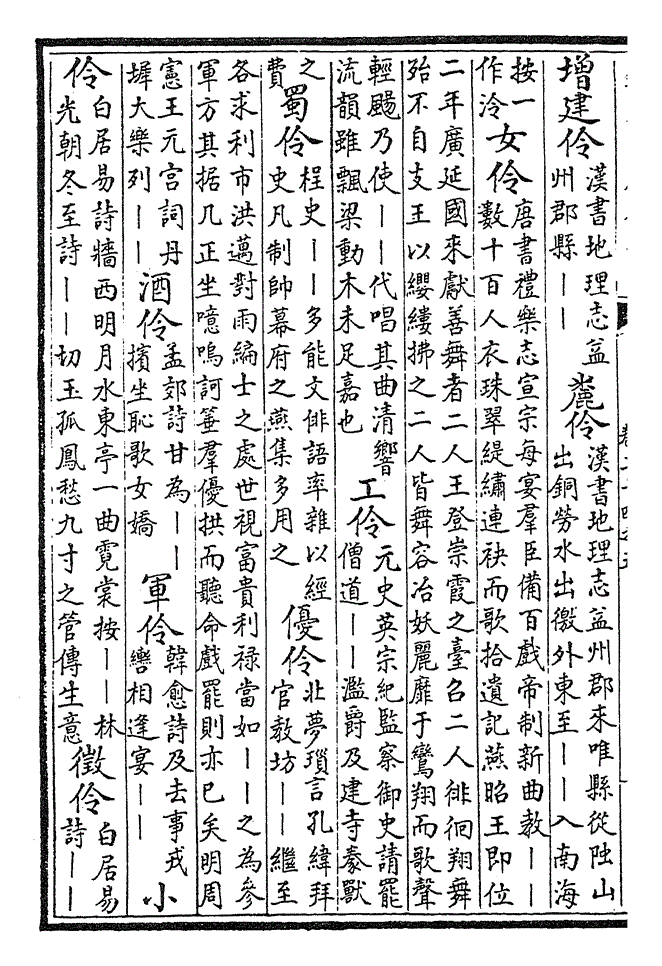 增建伶
漢書地理志益
州郡縣丨丨
麊伶
漢書地理志益州郡來唯縣從䧅山
出銅勞水出徼外東至丨丨入南海
按一
作泠
女伶
唐書禮樂志宣宗每宴羣臣備百戲帝制新曲教丨丨
數十百人衣珠翠緹繡連袂而歌拾遺記燕昭王即位
二年廣延國來獻善舞者二人王登崇霞之臺召二人徘徊翔舞
殆不自支王以纓縷拂之二人皆舞容冶妖麗靡于鸞翔而歌聲
輕颺乃使丨丨代唱其曲清響
流韻雖飄梁動木未足嘉也
工伶
元史英宗紀監察御史請罷
僧道丨丨濫爵及建寺豢獸
之
費
蜀伶
桯史丨丨多能文俳語率雜以經
史凡制帥幕府之燕集多用之
優伶
北夢瑣言孔緯拜
官教坊丨丨繼至
各求利市洪邁對雨編士之處世視富貴利祿當如丨丨之為參
軍方其据几正坐噫嗚訶箠羣優拱而聽命戲罷則亦已矣明周
憲王元宮詞丹
墀大樂列丨丨
酒伶
孟郊詩甘為丨丨
擯坐恥歌女嬌
軍伶
韓愈詩及去事戎
轡相逢宴丨丨
小
伶
白居易詩牆西明月水東亭一曲霓裳按丨丨林
光朝冬至詩丨丨切玉孤鳳愁九寸之管傳生意
徵伶
白居易
詩丨丨